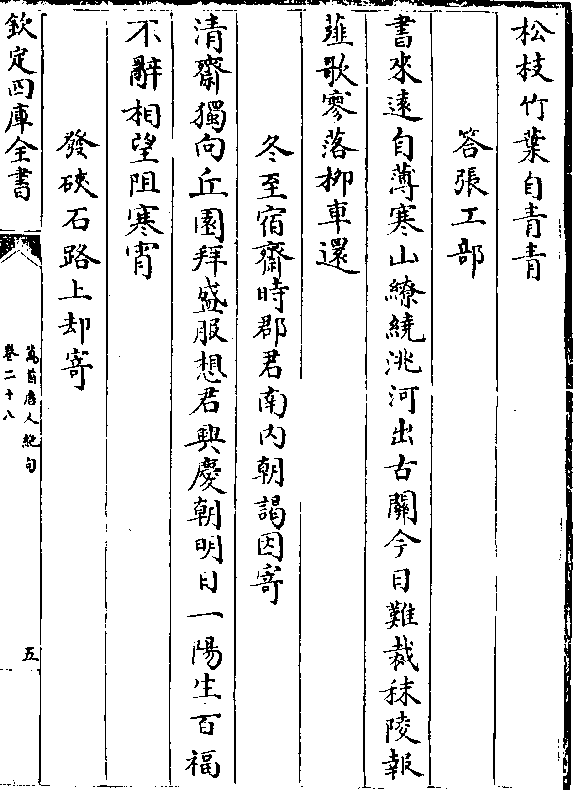 松枝竹葉自青青
答張工部
書來遠自薄寒山繚繞洮河出古關今日難裁秣陵報
薤歌寥落栁車還
冬至宿齋時郡君南内朝謁因寄
清齋獨向丘園拜盛服想君興慶朝明日一陽生百福
不辭相望阻寒宵
發硤石路上却寄
欽定四庫全書
萬首唐人絶句
卷二十八
五